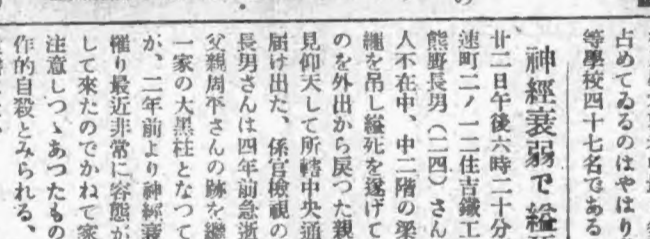 占めてゐるのはやはり
等學校四十七名である
神經衰弱で縊
廿二日午後六時二十分
速町二ノ一二住吉鐵工
熊野長男（二四）さん
人不在中、中二階の梁
繩を吊し縊死を遂げて
のを外出から戻つた親
見仰天して所轄中央通
届け出た、係官檢視の
長男さんは四年前急逝
父親周平さんの跡を繼
一家の大黒柱となつて
が、二年前より神經衰
罹り最近非常に容態が
して來たのでかねて家
注意しつゝあつたもの
作的自殺とみられる、